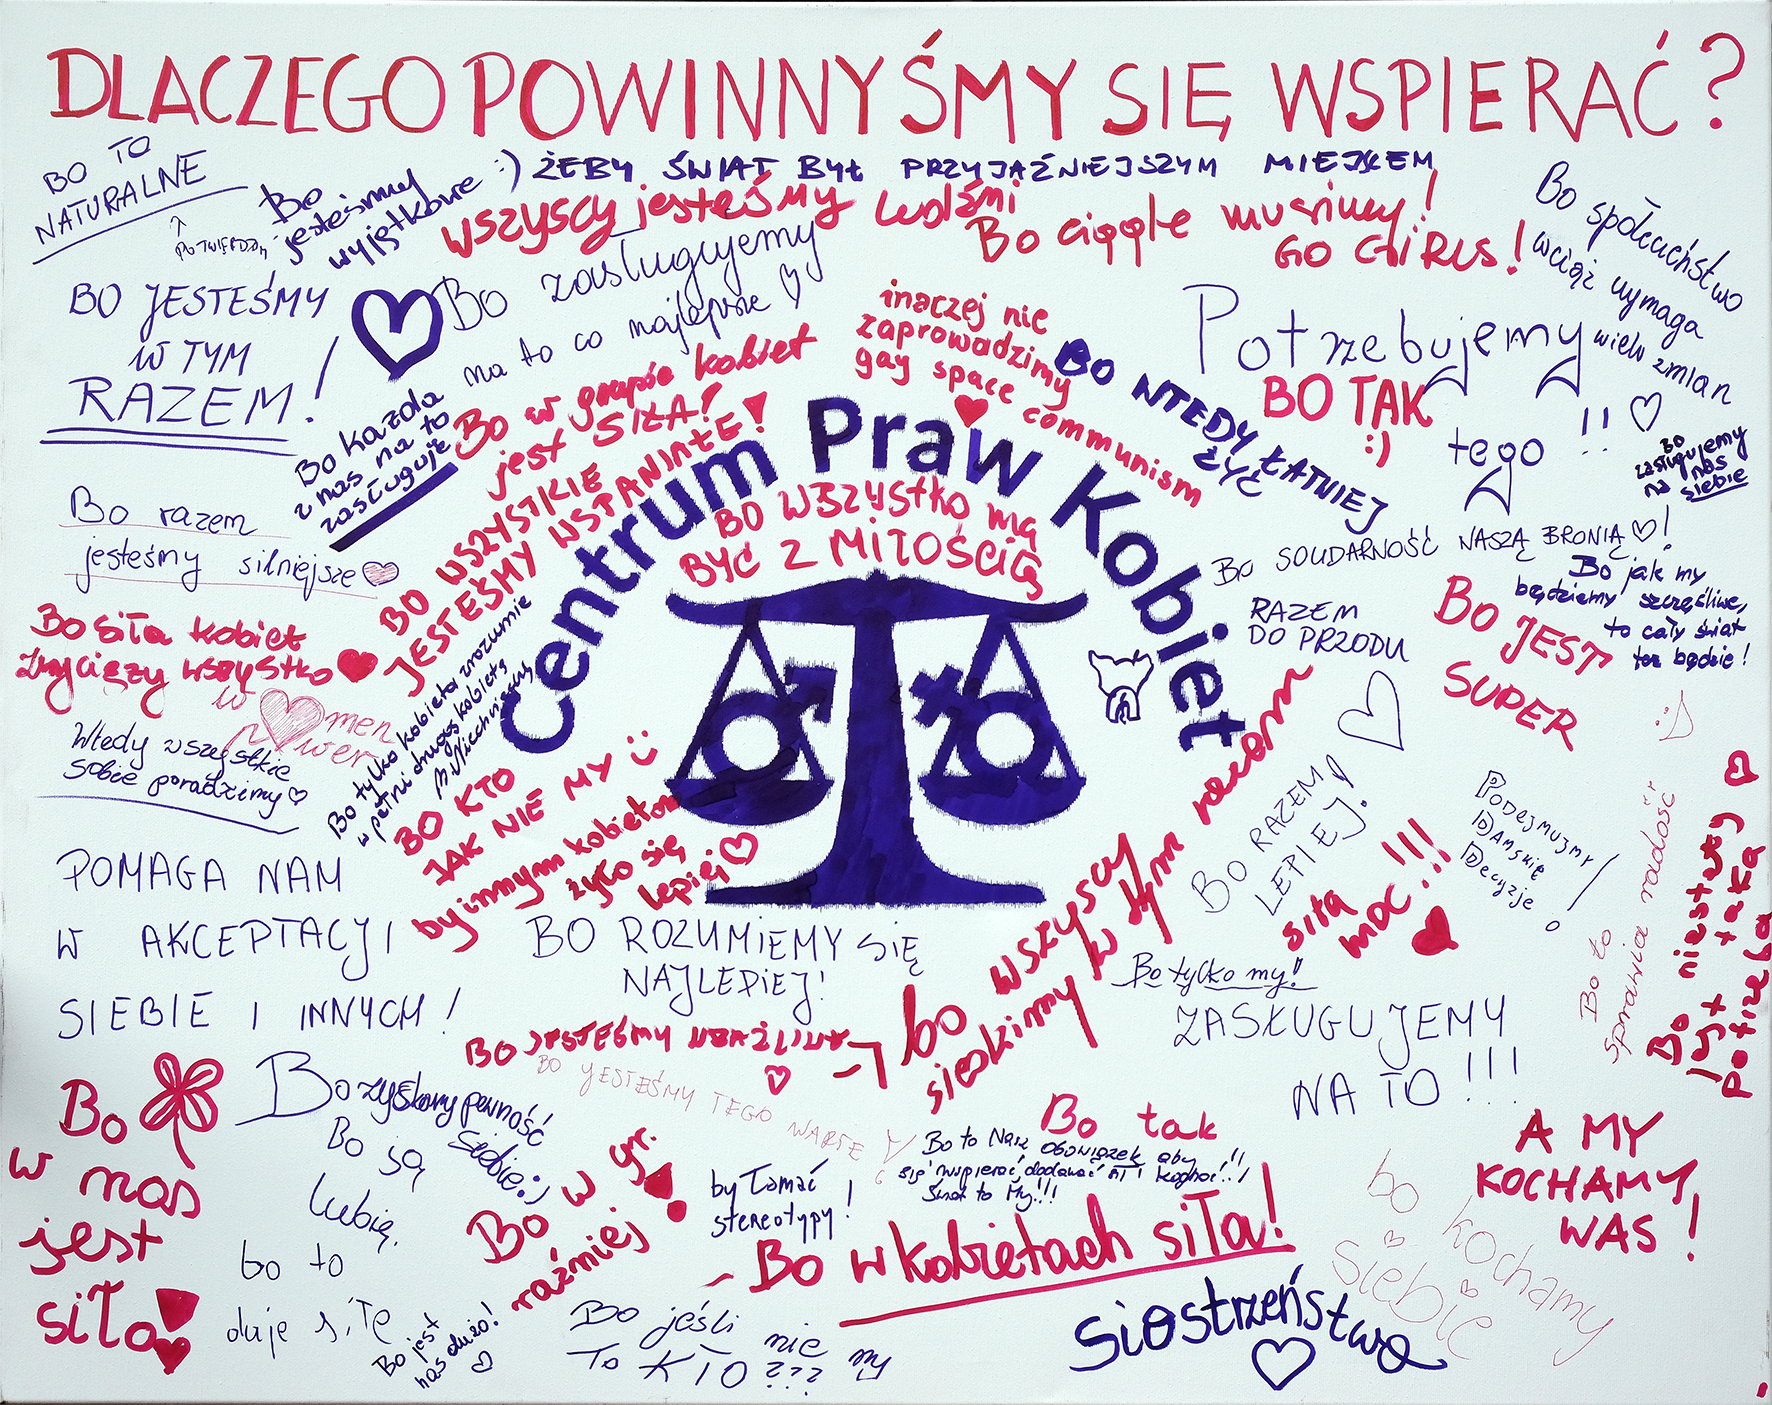 DLACZEGO POWINNYŚMY SIĘ WSPIERAĆ?
BO TO
NATURALNE
Bo
jesteśmy
wyjątkowe :)
ŻEBY ŚWIAT BYŁ PRZYJAŹNIEJSZYM MIEJSCEM
wszyscy jesteśmy ludźmi
Bo ciągle musimy!
GO GIRLS!
Bo społeczeństwo
wciąż wymaga
wielu zmian
!! ♡
BO JESTEŚMY
W TYM
RAZEM!
Bo zasługujemy
na to co najlepsze ♡
inaczej nie
zaprowadzimy
gay space communism
Potrzebujemy
tego
BO TAK
:)
BO WTEDY ŁATWIEJ
ŻYĆ
BO
zasługujemy
na nas
siebie
Bo każda
z nas na to
zasługuje
Bo w grupie kobiet
jest SIŁA!
BO WSZYSTKIE
JESTEŚMY WSPANIAŁE!
Centrum Praw Kobiet
BO WSZYSTKO MA
BYĆ Z MIŁOŚCIĄ
BO SOLIDARNOŚĆ NASZĄ BRONIĄ ♡!
Bo razem
jesteśmy silniejsze ♡
RAZEM
DO PRZODU
Bo jak my
będziemy szczęśliwe,
to cały świat
też będzie!
BO JEST
SUPER
:)
Bo siła kobiet
zwycięży wszystko ♥
women
power
Wtedy wszystkie
sobie poradzimy ♡
Bo tylko kobieta zrozumie
w pełni drugą kobietę
BO KTO
JAK NIE MY :)
by innym kobietom
żyło się
lepiej ♡
POMAGA NAM
W AKCEPTACJI
SIEBIE I INNYCH!
BO ROZUMIEMY SIĘ
NAJLEPIEJ!
bo wszyscy
siedzimy w tym razem
BO RAZEM
LEPIEJ!
siła
moc!!!
PODEJMUJMY
DAMSKIE
DECYZJE!
Bo to
sprawia radość
Bo niestety ♡
jest taka
potrzeba
Bo tylko my!
ZASŁUGUJEMY
NA TO!!!
BO JESTEŚMY WRAŻLIWE
BO JESTEŚMY TEGO WARTE
Bo
w nas
jest
siła
Bo zyskamy pewność
siebie :)
Bo są
lubię.
bo to
daje siłę
Bo jest
nas dużo!
Bo w gr.
raźniej!
by łamać
stereotypy!
Bo tak
Bo to Nasz obowiązek aby
się wspierać, dodawać sił i kochać!!
Świat to My!!!
- Bo w kobietach siła!
Bo jeśli nie my
To KTO???
siostrzeństwo
A MY
KOCHAMY
WAS!
bo kochamy
siebie